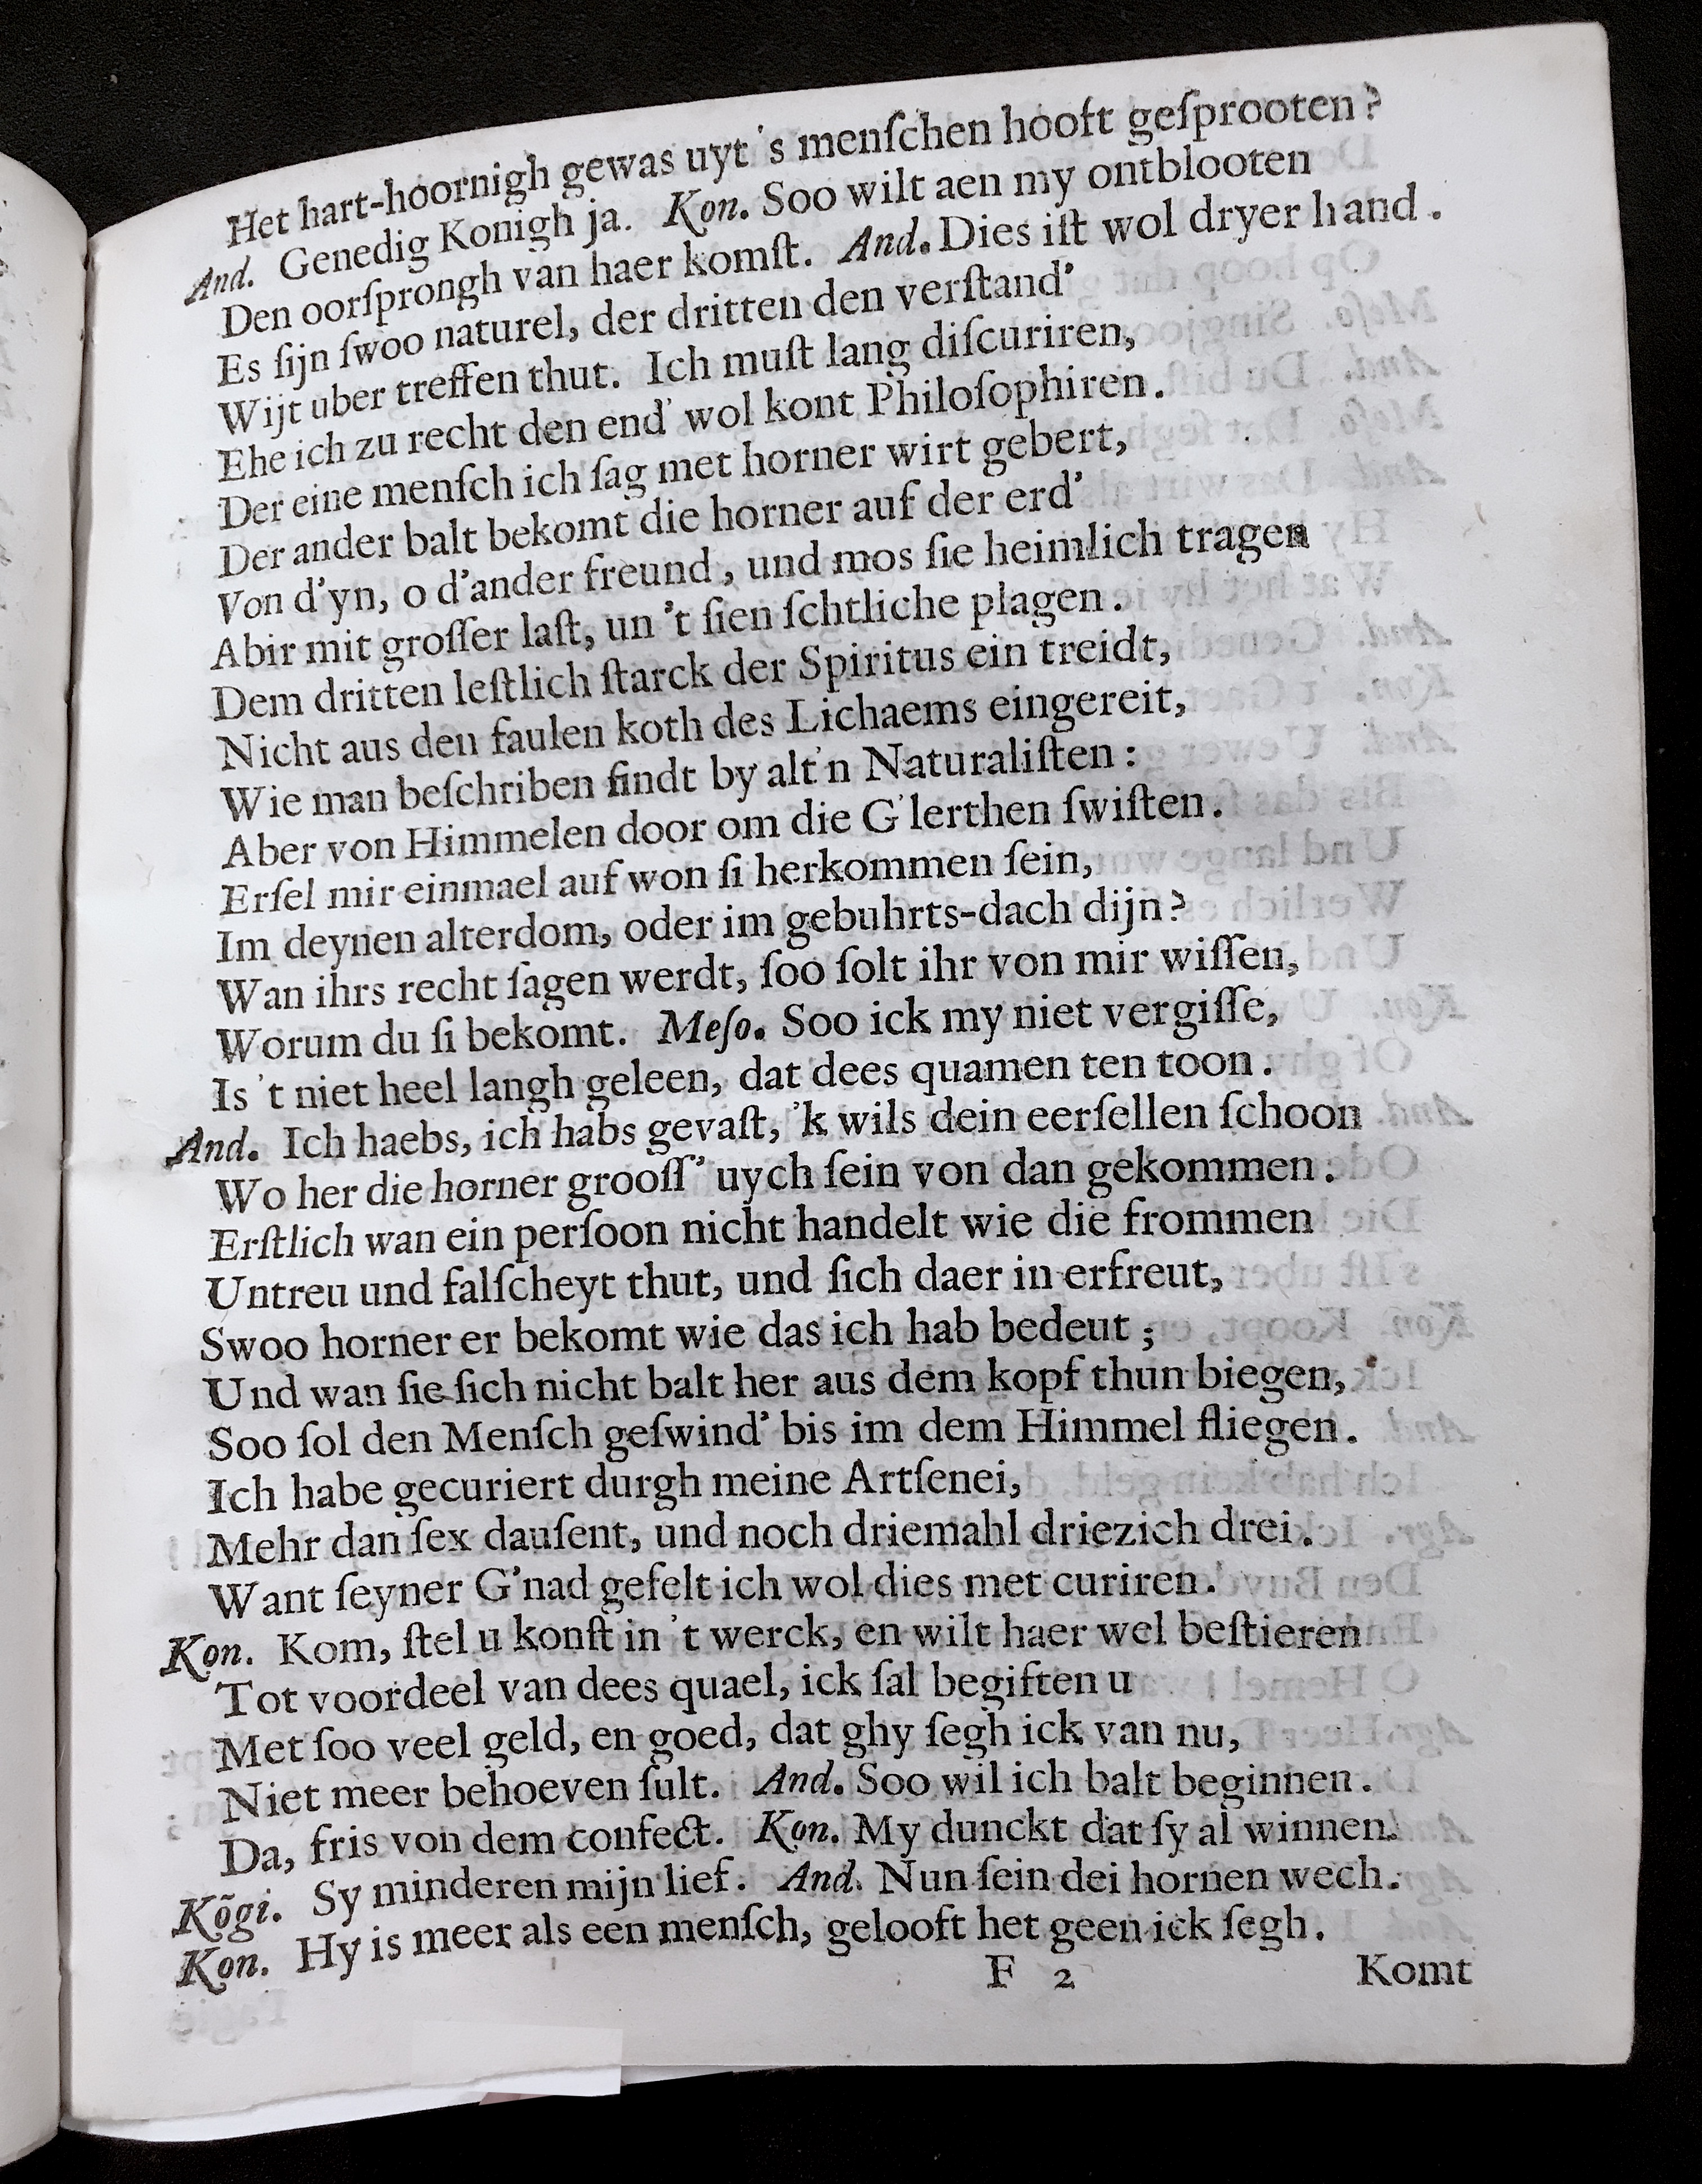 Het hart-hoornigh gewas uyt 's menſchen hooft geſprooten?
And. Genedig Konigh ja. Kon. Soo wilt aen my ontblooten
Den oorſprongh van haer komſt. And. Dies iſt wol dryer hand.
Es ſijn ſwoo naturel, der dritten den verſtand'
Wijt uber treffen thut. Ich muſt lang diſcuriren,
Ehe ich zu recht den end' wol kont Philoſophiren.
Der eine menſch ich ſag met horner wirt gebert,
Der ander balt bekomt die horner auf der erd'
Von d'yn, o d'ander freund, und mos ſie heimlich tragen
Abir mit groſſer laſt, un 't ſien ſchtliche plagen.
Dem dritten leſtlich ſtarck der Spiritus ein treidt,
Nicht aus den faulen koth des Lichaems eingereit,
Wie man beſchriben findt by alt'n Naturaliſten:
Aber von Himmelen door om die G'lerthen ſwiſten.
Erſel mir einmael auf won ſi herkommen ſein,
Im deynen alterdom, oder im gebuhrts-dach dijn?
Wan ihrs recht ſagen werdt, ſoo ſolt ihr von mir wiſſen,
Worum du ſi bekomt. Meſo. Soo ick my niet vergiſſe,
Is 't niet heel langh geleen, dat dees quamen ten toon.
And. Ich haebs, ich habs gevaſt, 'k wils dein eerſellen ſchoon
Wo her die horner grooſſ' uych ſein von dan gekommen.
Erſtlich wan ein perſoon nicht handelt wie die frommen
Untreu und falſcheyt thut, und ſich daer in erfreut,
Swoo horner er bekomt wie das ich hab bedeut;
Und wan ſie ſich nicht balt her aus dem kopf thun biegen,
Soo ſol den Menſch geſwind' bis im dem Himmel fliegen.
Ich habe gecuriert durgh meine Artſenei,
Mehr dan ſex dauſent, und noch driemahl driezich drei.
Want ſeyner G'nad gefelt ich wol dies met curiren.
Kon. Kom, ſtel u konſt in 't werck, en wilt haer wel beſtieren
Tot voordeel van dees quael, ick ſal begiften u
Met ſoo veel geld, en goed, dat ghy ſegh ick van nu,
Niet meer behoeven ſult. And. Soo wil ich balt beginnen.
Da, fris von dem confect. Kon. My dunckt dat ſy al winnen.
Kõgi. Sy minderen mijn lief. And. Nun ſein dei hornen wech.
Kon. Hy is meer als een menſch, gelooft het geen ick ſegh.
F 2 Komt